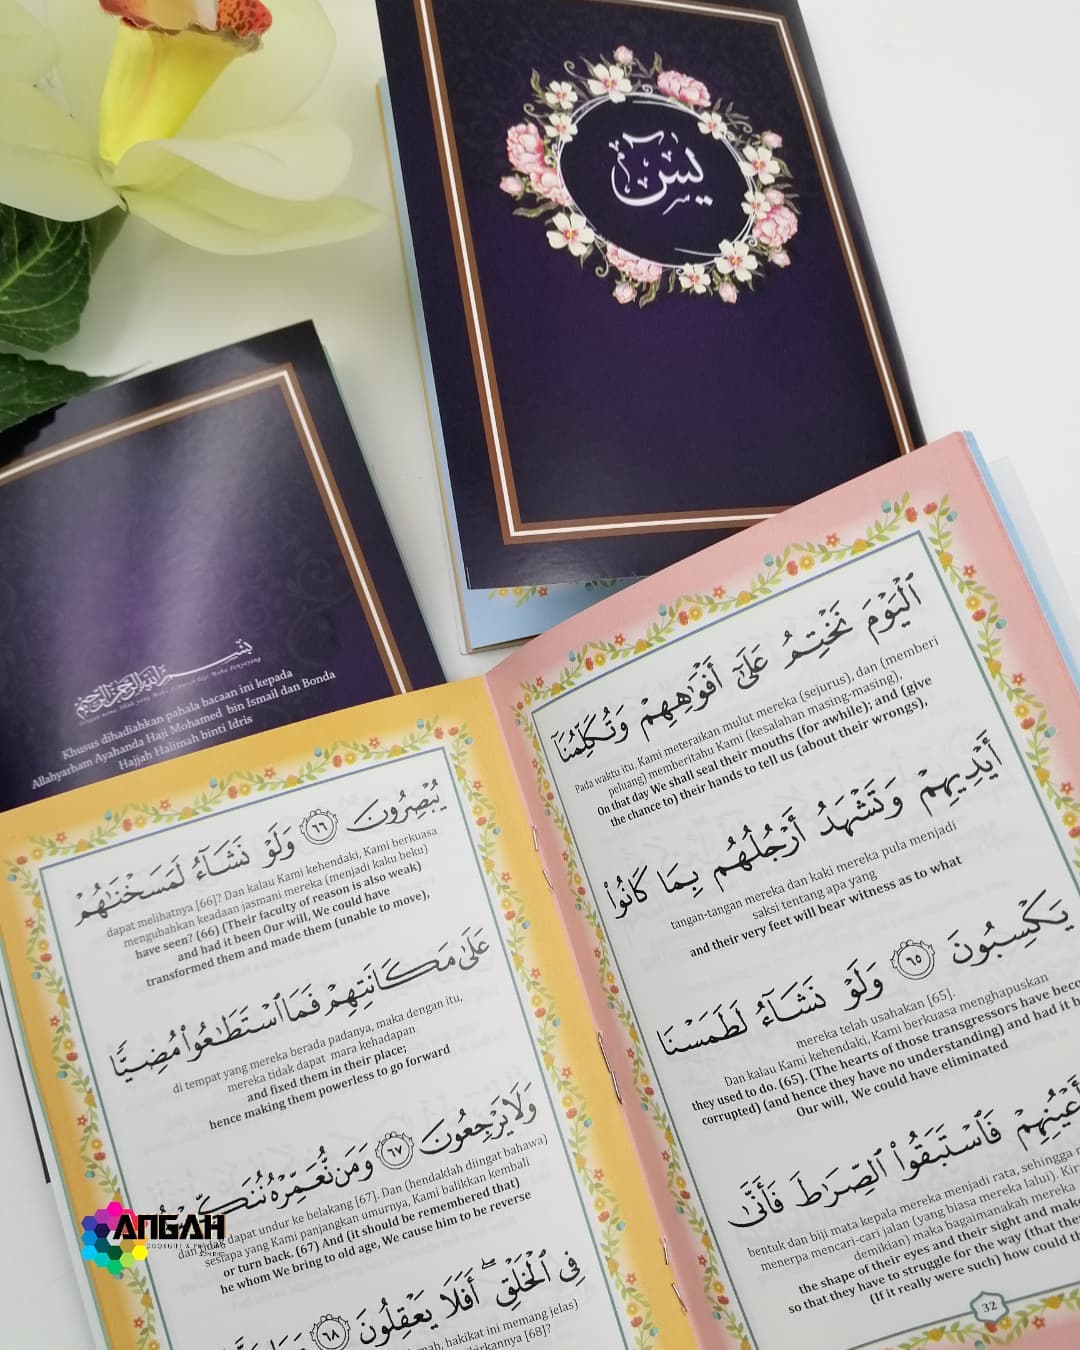 يسٓ
Khusus dihadiahkan pahala bacaan ini kepada
Allahyarham Ayahanda Haji Mohamed bin Ismail dan Bonda
Hajjah Halimah binti Idris
ٱلْيَوْمَ نَخْتِمُ عَلَىٰٓ أَفْوَٰهِهِمْ وَتُكَلِّمُنَآ
Pada waktu itu, Kami meteraikan mulut mereka (sejurus), dan (memberi
peluang) memberitahu Kami (kesalahan masing-masing),
On that day We shall seal their mouths (for awhile); and (give
the chance to) their hands to tell us (about their wrongs),
أَيْدِيهِمْ وَتَشْهَدُ أَرْجُلُهُم بِمَا كَانُوا۟
tangan-tangan mereka dan kaki mereka pula menjadi
saksi tentang apa yang
and their very feet will bear witness as to what
يَكْسِبُونَ ٦٥ وَلَوْ نَشَآءُ لَطَمَسْنَا
mereka telah usahakan [65].
Dan kalau Kami kehendaki, Kami berkuasa menghapuskan
they used to do. (65). (The hearts of those transgressors have
corrupted) (and hence they have no understanding) and had it
Our will, We could have eliminated
أَعْيُنِهِمْ فَٱسْتَبَقُوا۟ ٱلصِّرَٰطَ فَأَنَّىٰ
bentuk dan biji mata kepala mereka menjadi rata, sehingga
menerpa mencari-cari jalan (yang biasa mereka lalui).
demikian) maka bagaimanakah mereka
the shape of their eyes and their sight and make
so that they have to struggle for the way (that
(If it really were such) how could
32
يُبْصِرُونَ ٦٦ وَلَوْ نَشَآءُ لَمَسَخْنَٰهُمْ
dapat melihatnya [66]? Dan kalau Kami kehendaki, Kami berkuasa
mengubahkan keadaan jasmani mereka (menjadi kaku beku)
have seen? (66) (Their faculty of reason is also weak)
and had it been Our will, We could have
transformed them and made them (unable to move),
عَلَىٰ مَكَانَتِهِمْ فَمَا ٱسْتَطَٰعُوا۟ مُضِيًّا
di tempat yang mereka berada padanya, maka dengan itu,
mereka tidak dapat mara kehadapan
and fixed them in their place;
hence making them powerless to go forward
وَلَا يَرْجِعُونَ ٦٧ وَمَن نُّعَمِّرْهُ نُنَكِّسْهُ
dan tidak dapat undur ke belakang [67]. Dan (hendaklah diingat bahawa)
sesiapa yang Kami panjangkan umurnya, Kami balikkan kembali
or turn back. (67) And (it should be remembered that)
he whom We bring to old age, We cause him to be reverse
فِى ٱلْخَلْقِ ۖ أَفَلَا يَعْقِلُونَ ٦٨
hakikat ini memang jelas)
[68]?
ANGAH